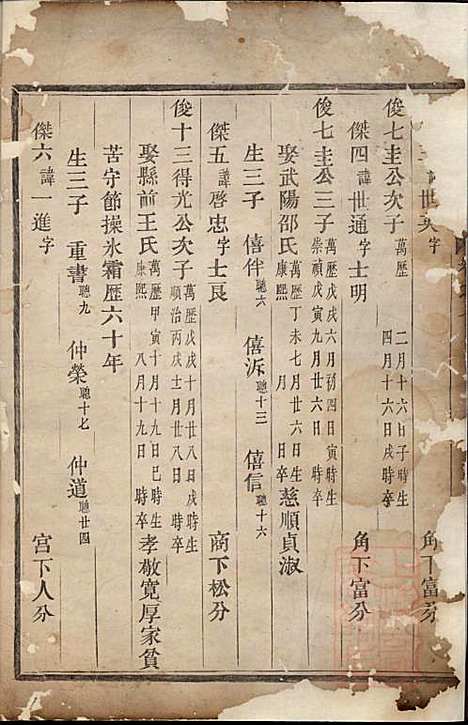 世英字 角下富分
俊七圭公次子 萬歷 二月十六日子時生 四月十六日戌時卒
傑四諱世通字士明 角下富分
俊七圭公三子 萬歷戊戌六月初四日寅時生 崇禎戊寅九月廿六日 時卒
娶武陽邵氏 萬歷丁未七月廿六日 時生 康熙 月 日 時卒 慈順貞淑
生三子 僖伴聰六 僖泝聰十三 僖信聰十六
傑五諱啓忠字士良 商下松分
俊十三得光公次子 萬歷戊戌十月廿八日戌時生 順治丙戌十二月廿八日 時卒
娶縣前王氏 萬歷甲寅十月十九日巳時生 康熙 八月十九日 時卒 孝敬寬厚家貧
苦守節操氷霜歷六十年
生三子 重書聰九 仲榮聰十七 仲道聰廿四
傑六諱一進字 宮下人分